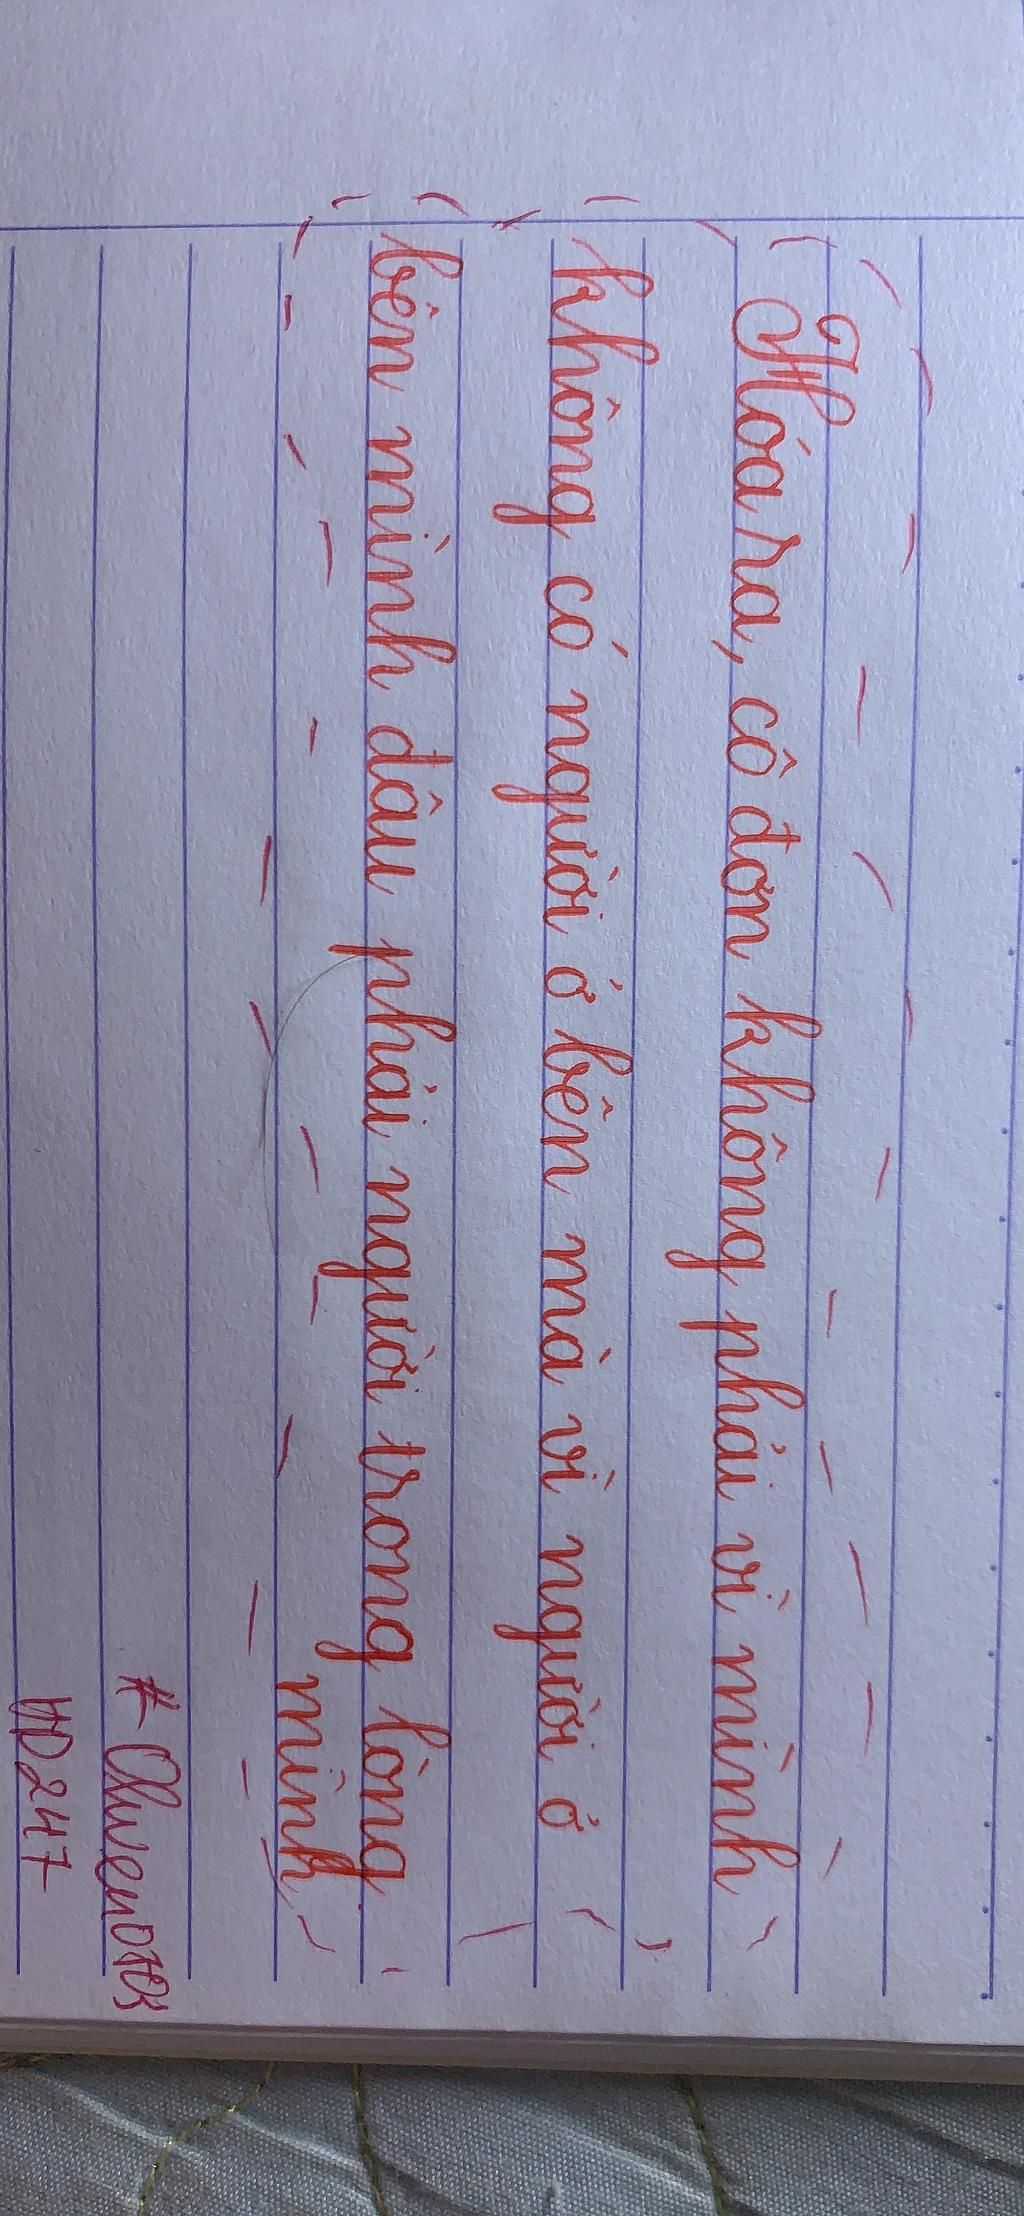 Hóa ra, cô đơn không phải vì mình
không có người ở bên mà vì người ở
bên mình đâu phải người trong lòng
mình
HD247